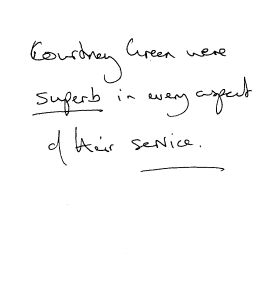 Courtney Green were
superb in every aspect
of their service.